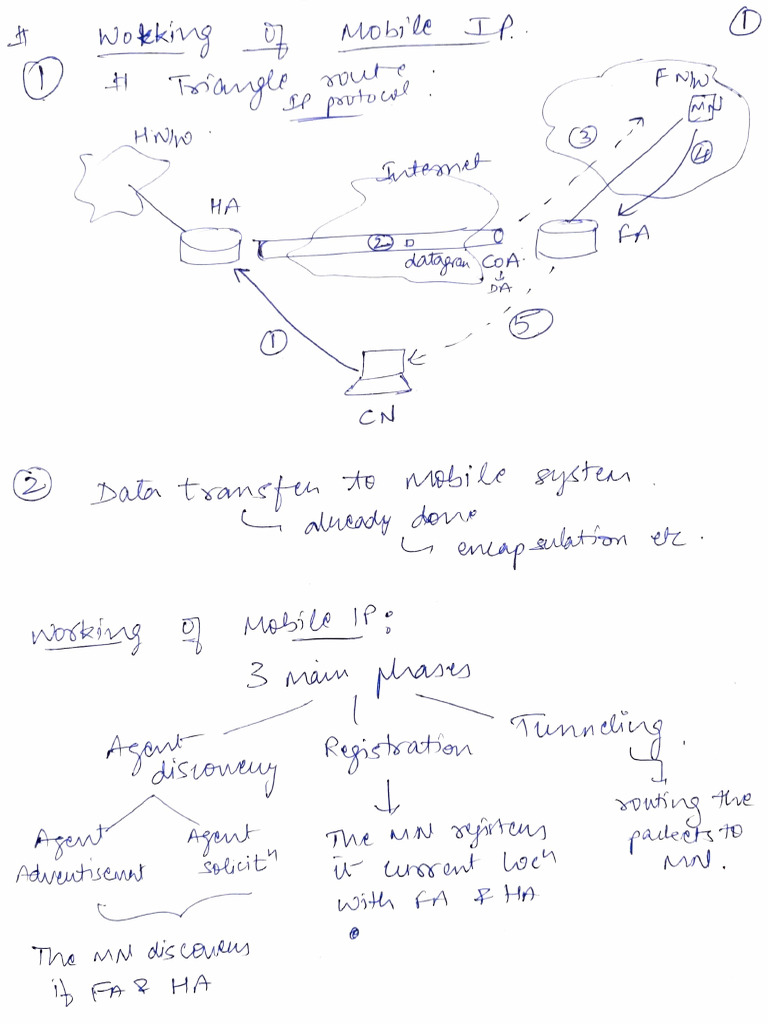 # Working of Mobile IP. ①
① # Triangle route
IP protocol :
HN/W .
FN/W
MN
③
④
Internet
HA
②
datagram COA.
DA
FA
①
⑤
CN
② Data transfer to mobile system .
already done
encapsulation etc .
Working of Mobile IP :
3 main phases
Agent
discovery
Registration
Tunneling .
Agent
Advertisement
Agent
solicitⁿ
The MN registers
it current locⁿ
with FA & HA
routing the
packets to
MN .
The MN discovers
it FA & HA